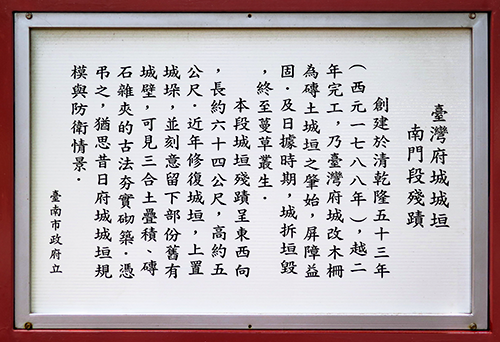 臺灣府城城垣
南門段殘蹟
創建於清乾隆五十三年
(西元一七八八年),越二
年完工,乃臺灣府城改木柵
為磚土城垣之肇始,屏障益
固.及日據時期,城拆垣毀
,終至蔓草叢生.
本段城垣殘蹟呈東西向
,長約六十四公尺,高約五
公尺.近年修復城垣,上置
城垛,並刻意留下部份舊有
城壁,可見三合土疊積、磚
石雜夾的古法夯實砌築.憑
弔之,猶思昔日府城城垣規
模與防衛情景.
臺南市政府立